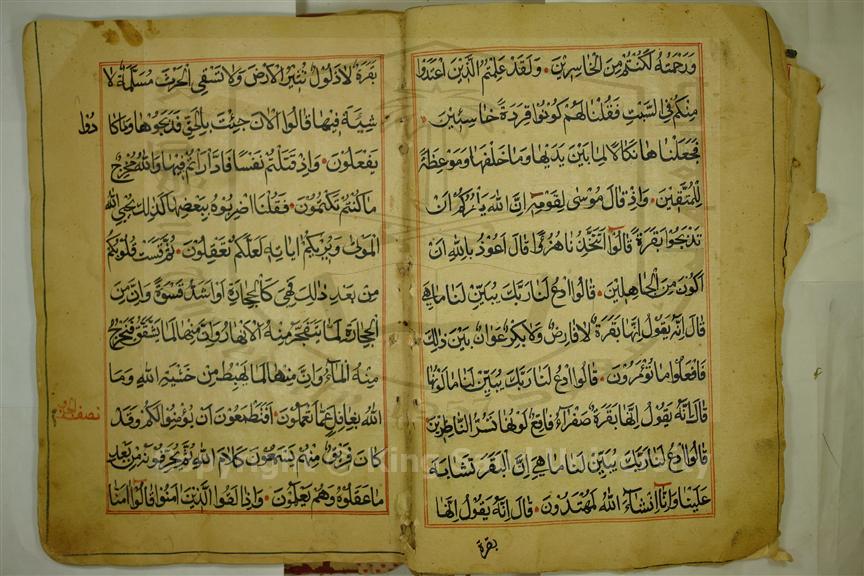 ورحمته لكنتم من الخاسرين ولقد علمتم الذين اعتدوا
منكم في السبت فقلنا لهم كونوا قردة خاسئين
فجعلناها نكالا لما بين يديها وما خلفها وموعظة
للمتقين واذ قال موسى لقومه ان الله يأمركم ان
تذبحوا بقرة قالوا اتتخذنا هزوا قال اعوذ بالله ان
اكون من الجاهلين قالوا ادع لنا ربك يبين لنا ما هي
قال انه يقول انها بقرة لا فارض ولا بكر عوان بين ذلك
فافعلوا ما تؤمرون قالوا ادع لنا ربك يبين لنا ما لونها
قال انه يقول انها بقرة صفراء فاقع لونها تسر الناظرين
قالوا ادع لنا ربك يبين لنا ما هي ان البقر تشابه
علينا وانا انشاء الله لمهتدون قال انه يقول انها
بقرة
بقرة لا ذلول تثير الارض ولا تسقي الحرث مسلمة لا
شية فيها قالوا الان جئت بالحق فذبحوها وما كا
دوا
يفعلون واذ قتلتم نفسا فادارأتم فيها والله مخرج
ما كنتم تكتمون فقلنا اضربوه ببعضها كذلك يحيي الله
الموتى ويريكم اياته لعلكم تعقلون ثم قست قلوبكم
من بعد ذلك فهي كالحجارة او اشد قسوة وان من
الحجارة لما يتفجر منه الانهار وان منها لما يشقق فيخرج
منه الماء وان منها لما يهبط من خشية الله وما
الله بغافل عما تعملون افتطمعون ان يؤمنوا لكم وقد
نصف الحزب
كان فريق منهم يسمعون كلام الله ثم يحرفونه من بعد
ما عقلوه وهم يعلمون واذا لقوا الذين امنوا قالوا امنا